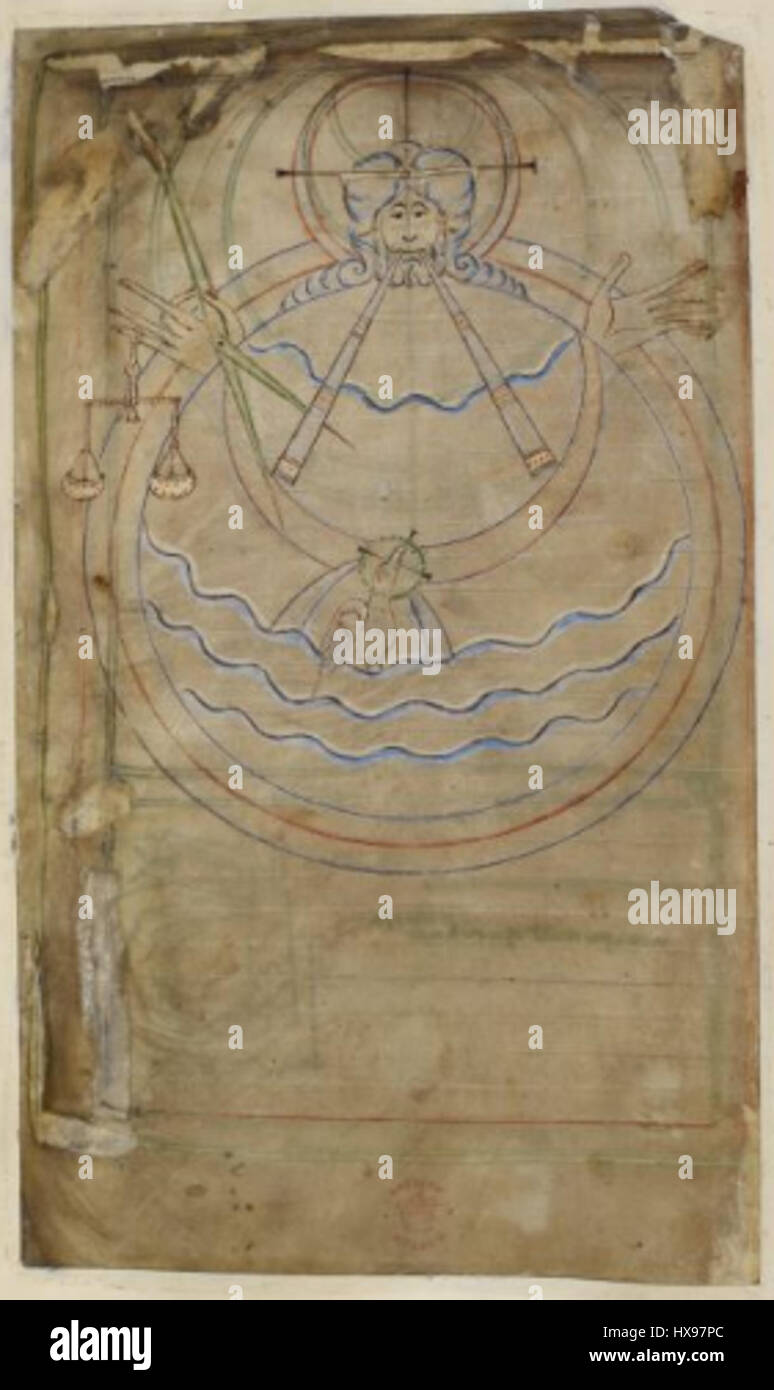 alamy
a
a
a
a
a
a
a
a
alamy
a
a
a
a
alamy
a
a
a
a
a
a
alamy
Image ID: HX97PC
www.alamy.com